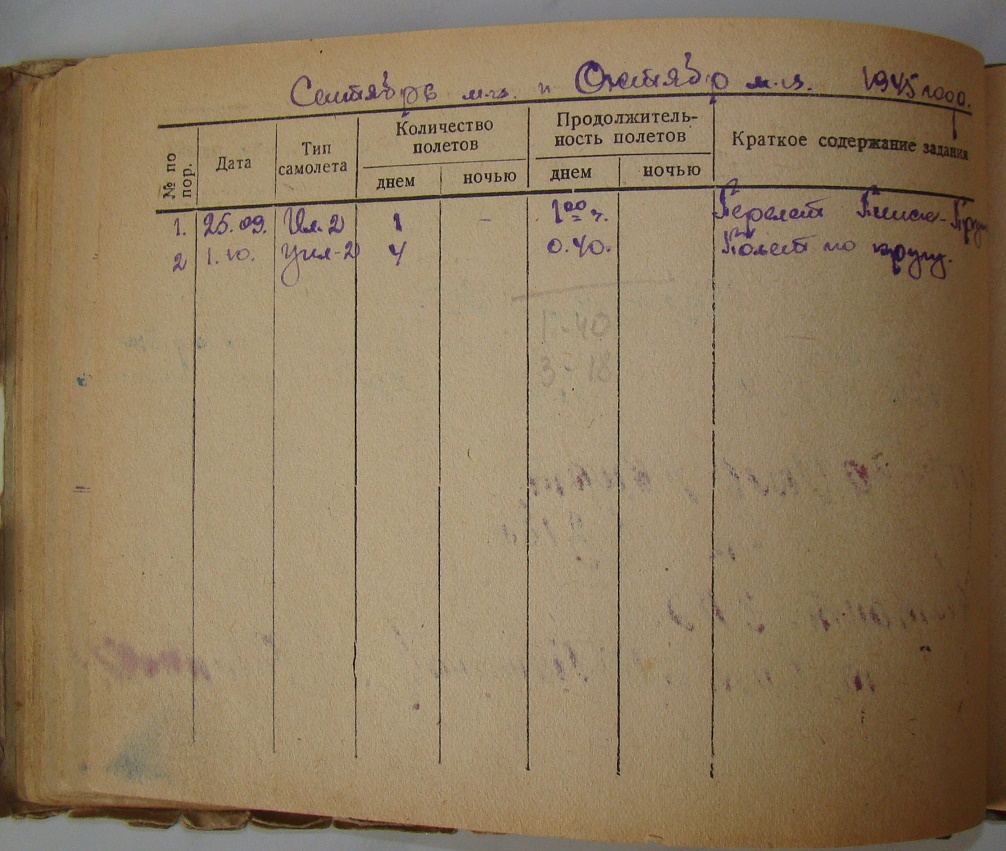 Сентябрь м-ц. и Октябрь м-ц. 1945 года.
№ по пор. Дата Тип самолета Количество полетов Продолжитель-ность полетов Краткое содержание задания
днем ночью днем ночью
1. 25.09. Ил-2 1 - 1 00 ч. Перелет
2 1.10. Уил-2 4 0.40. Полет по кругу.
1-40
3-18